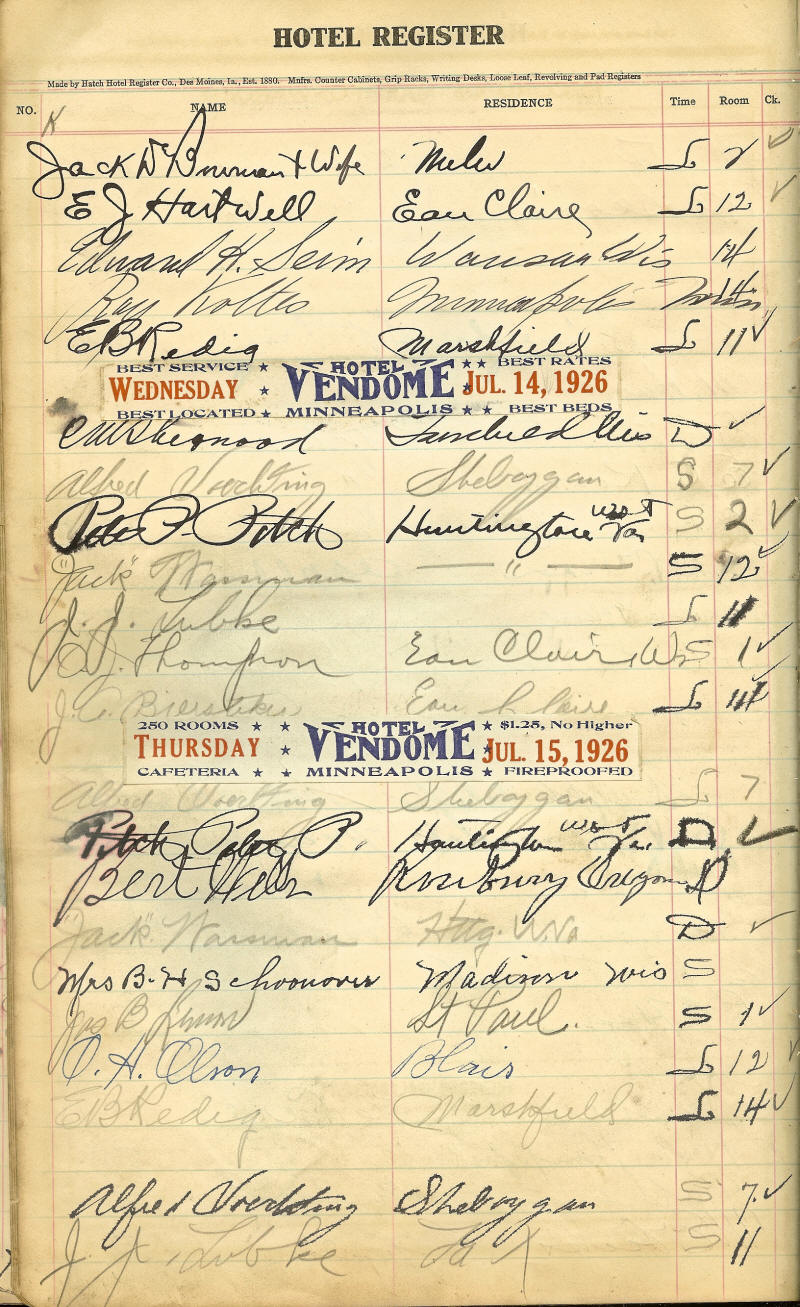 HOTEL REGISTER
Made by Hatch Hotel Register Co., Des Moines, Ia., Est. 1880. Mnfrs. Counter Cabinets, Grip Racks, Writing Desks, Loose Leaf, Revolving and Pad Registers
NO. NAME RESIDENCE Time Room Ck.
Jack D Bowman & Wife L 2
E J Hartwell Eau Claire L 12
Edward H. Seim Wausau Wis 14
Ray Minneapolis Minn 14
E B Redig Marshfield L 11
BEST SERVICE ★ HOTEL ★★ BEST RATES
WEDNESDAY ★ VENDOME ★ JUL. 14, 1926
BEST LOCATED ★ MINNEAPOLIS ★ ★ BEST BEDS
Sherwood Fairchild Wis D
Alfred Voechting Sheboygan S 7
Pete P. Pitch Huntington West Va S 2
"Jack" Wassman — " — S 12
J. J. Lubke L 11
Thompson Eau Claire Wis S 1
J. C. Eau Claire L 14
250 ROOMS ★ ★ HOTEL ★ $1.25, No Higher
THURSDAY ★ VENDOME ★ JUL. 15, 1926
CAFETERIA ★ ★ MINNEAPOLIS ★ FIREPROOFED
Alfred Voechting Sheboygan L 7
Pitch, Peter P. Huntington West Va. D
Bert Roseburg Oregon D
"Jack" Wassman Httg. W. Va D
Mrs B. H Schoonover Madison Wis S
Jas B St Paul. S 1
O. A. Olson Blair L 12
E B Redig Marshfield L 14
Alfred Voechting Sheboygan S 7
J. J. Lubke La X S 11